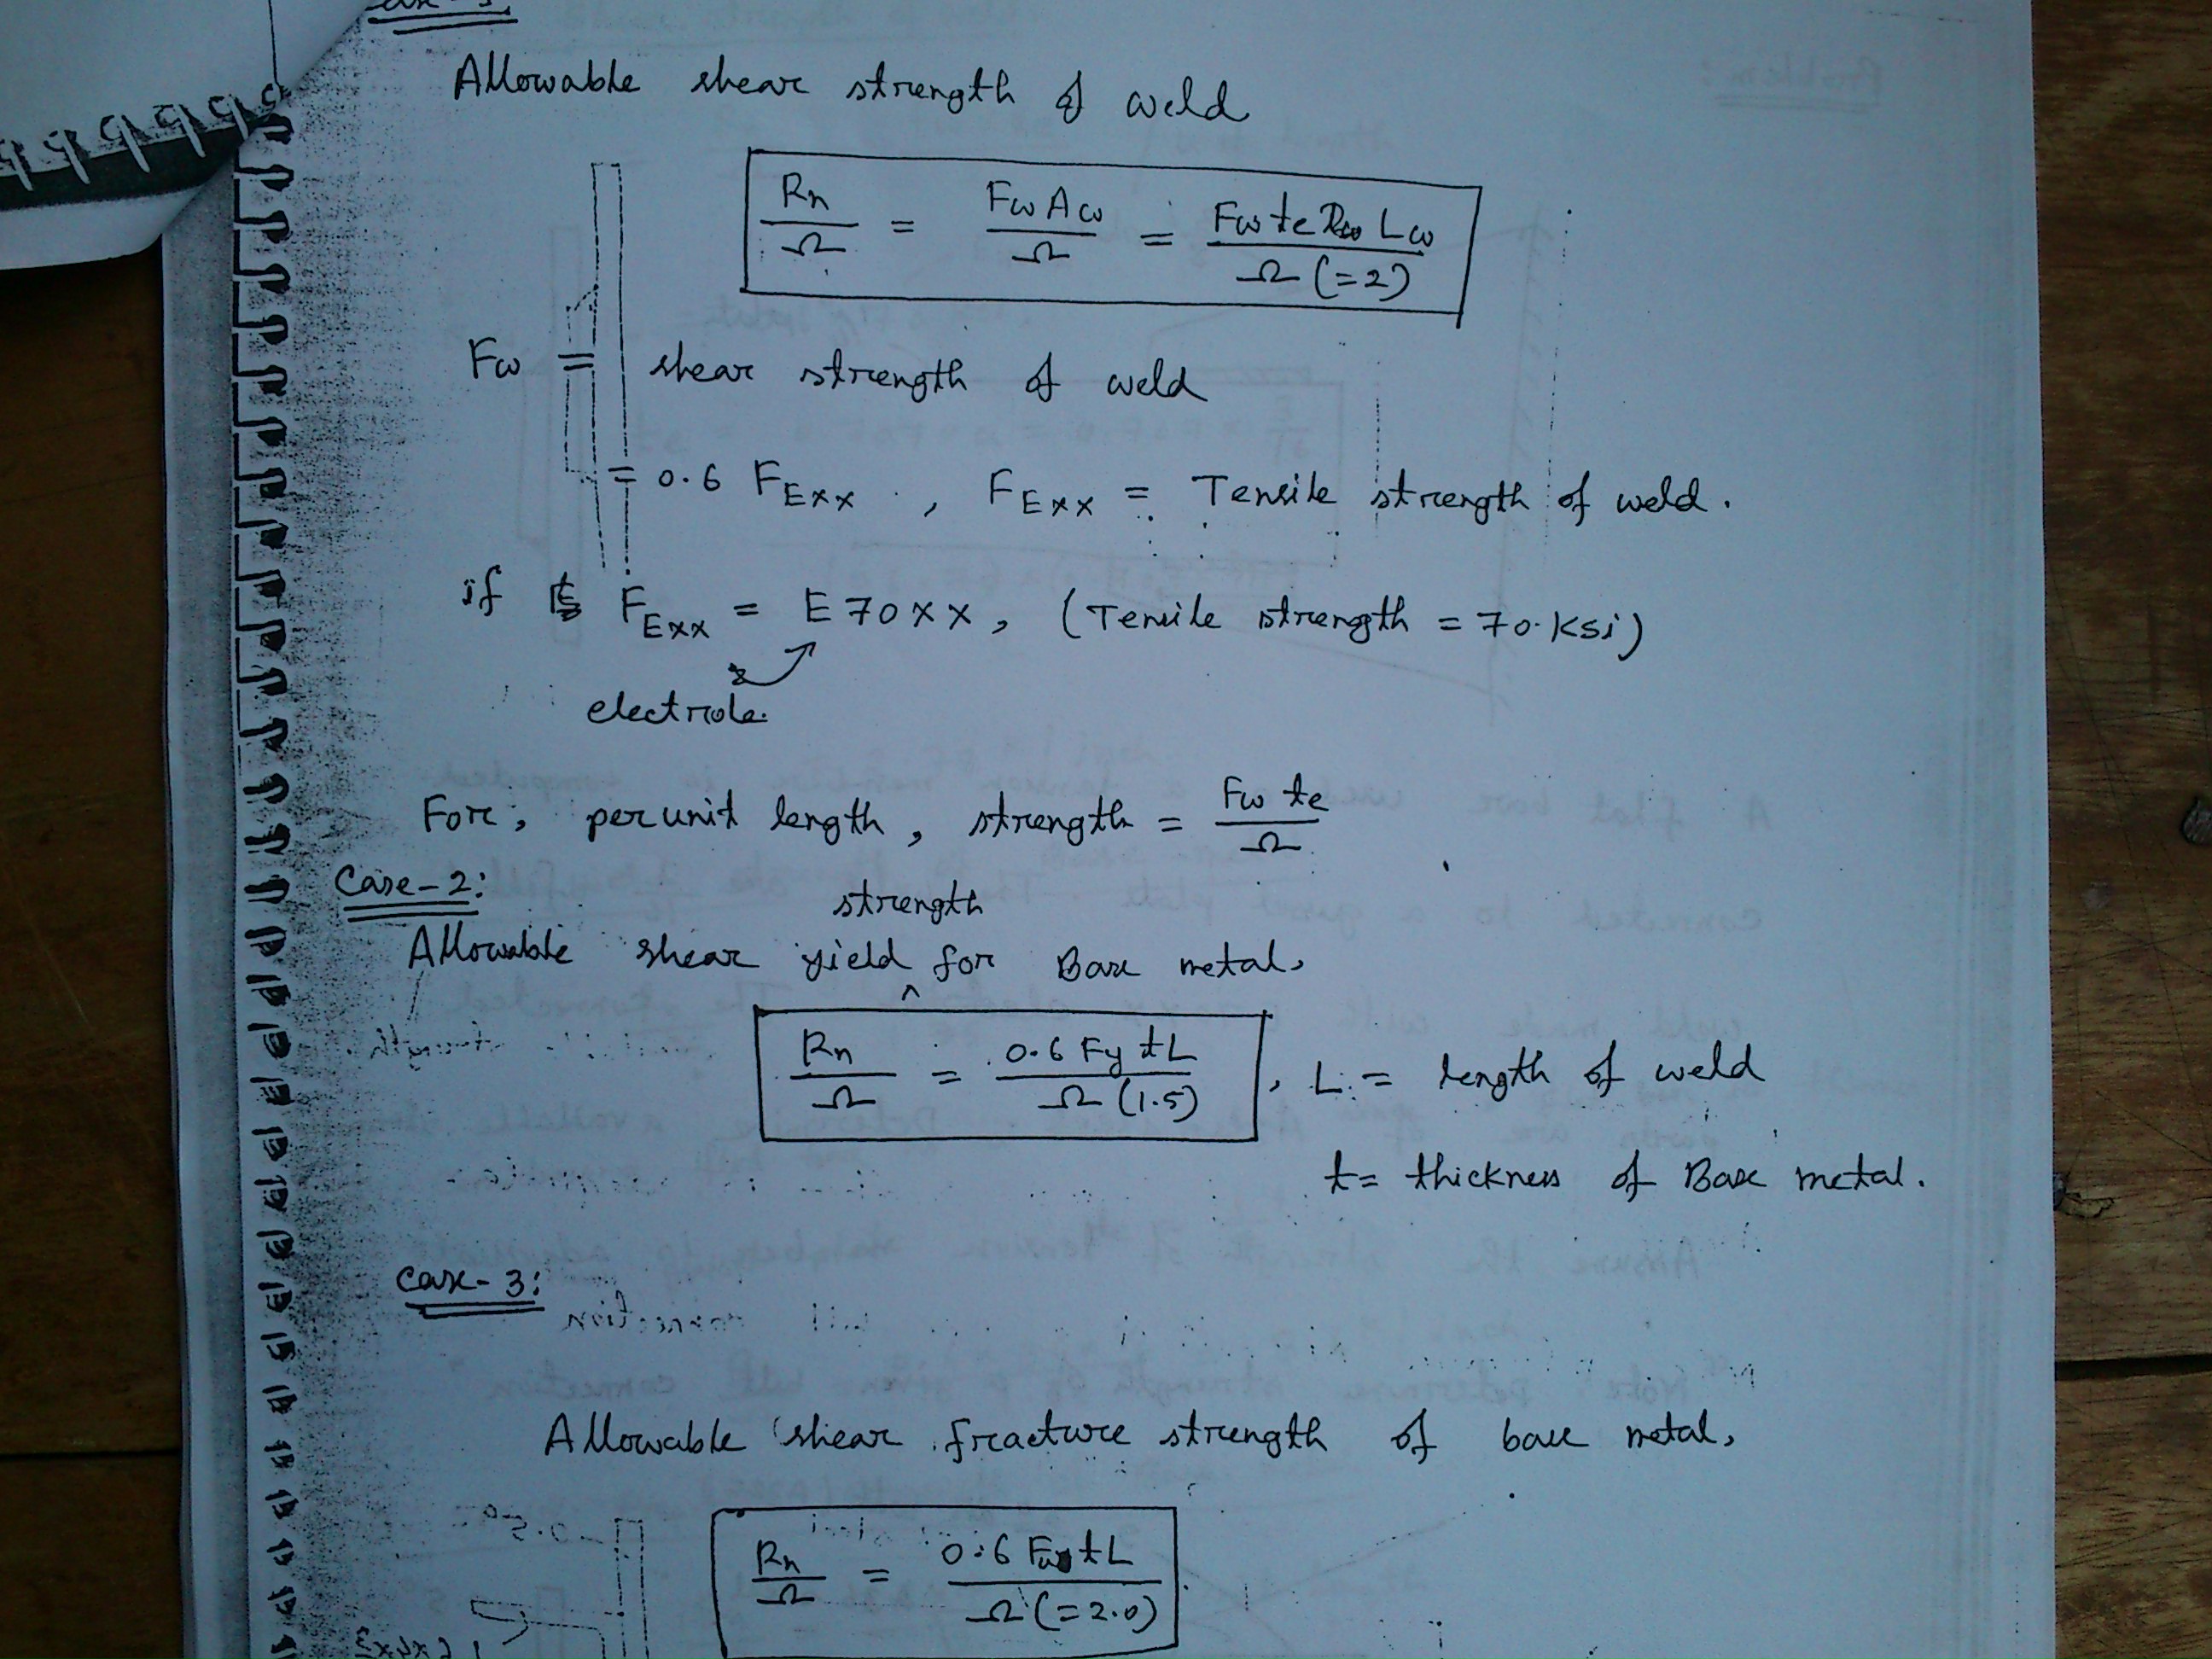 Allowable shear strength of weld
Rn/Ω = Fw Aw/Ω = Fw te Lw/Ω (=2)
Fw = shear strength of weld
= 0.6 FExx , FExx = Tensile strength of weld.
if FExx = E70xx, (Tensile strength = 70 ksi)
electrode
For, per unit length, strength = Fw te/Ω
Case-2:
strength
Allowable shear yield ^ for Base metal,
Rn/Ω = 0.6 Fy tL/Ω (1.5) , L = length of weld
t = thickness of Base metal.
Case-3:
Allowable shear fracture strength of base metal,
Rn/Ω = 0.6 Fu tL/Ω (=2.0)